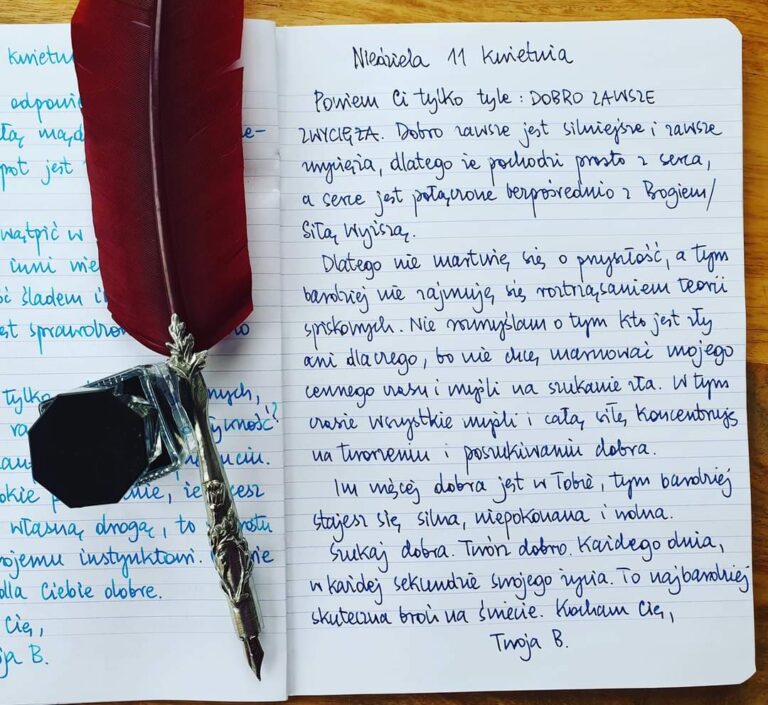 kwietn
odpowi
łą mąd
e-
pot jest
wątpić w
inni nie
ść śladem i
est sprawdzon
o
tylko
nych,
ra
tywność?
zau
uciu.
okie p
nie, że
cesz
własną drogą, to
ojemu instynktowi.
nie
dla Ciebie dobre.
Cię,
ja B.
Niedziela 11 kwietnia
Powiem Ci tylko tyle : DOBRO ZAWSZE
ZWYCIĘŻA. Dobro zawsze jest silniejsze i zawsze
zwycięża, dlatego że pochodzi prosto z serca,
a serce jest połączone bezpośrednio z Bogiem/
Siłą Wyższą.
Dlatego nie martwię się o przyszłość, a tym
bardziej nie zajmuję się roztrząsaniem teorii
spiskowych. Nie rozmyślam o tym kto jest zły
ani dlaczego, bo nie chcę marnować mojego
cennego czasu i myśli na szukanie zła. W tym
czasie wszystkie myśli i całą siłę koncentruję
na tworzeniu i poszukiwaniu dobra.
Im więcej dobra jest w Tobie, tym bardziej
stajesz się silna, niepokonana i wolna.
Szukaj dobra. Twórz dobro. Każdego dnia,
w każdej sekundzie swojego życia. To najbardziej
skuteczna broń na świecie. Kocham Cię,
Twoja B.